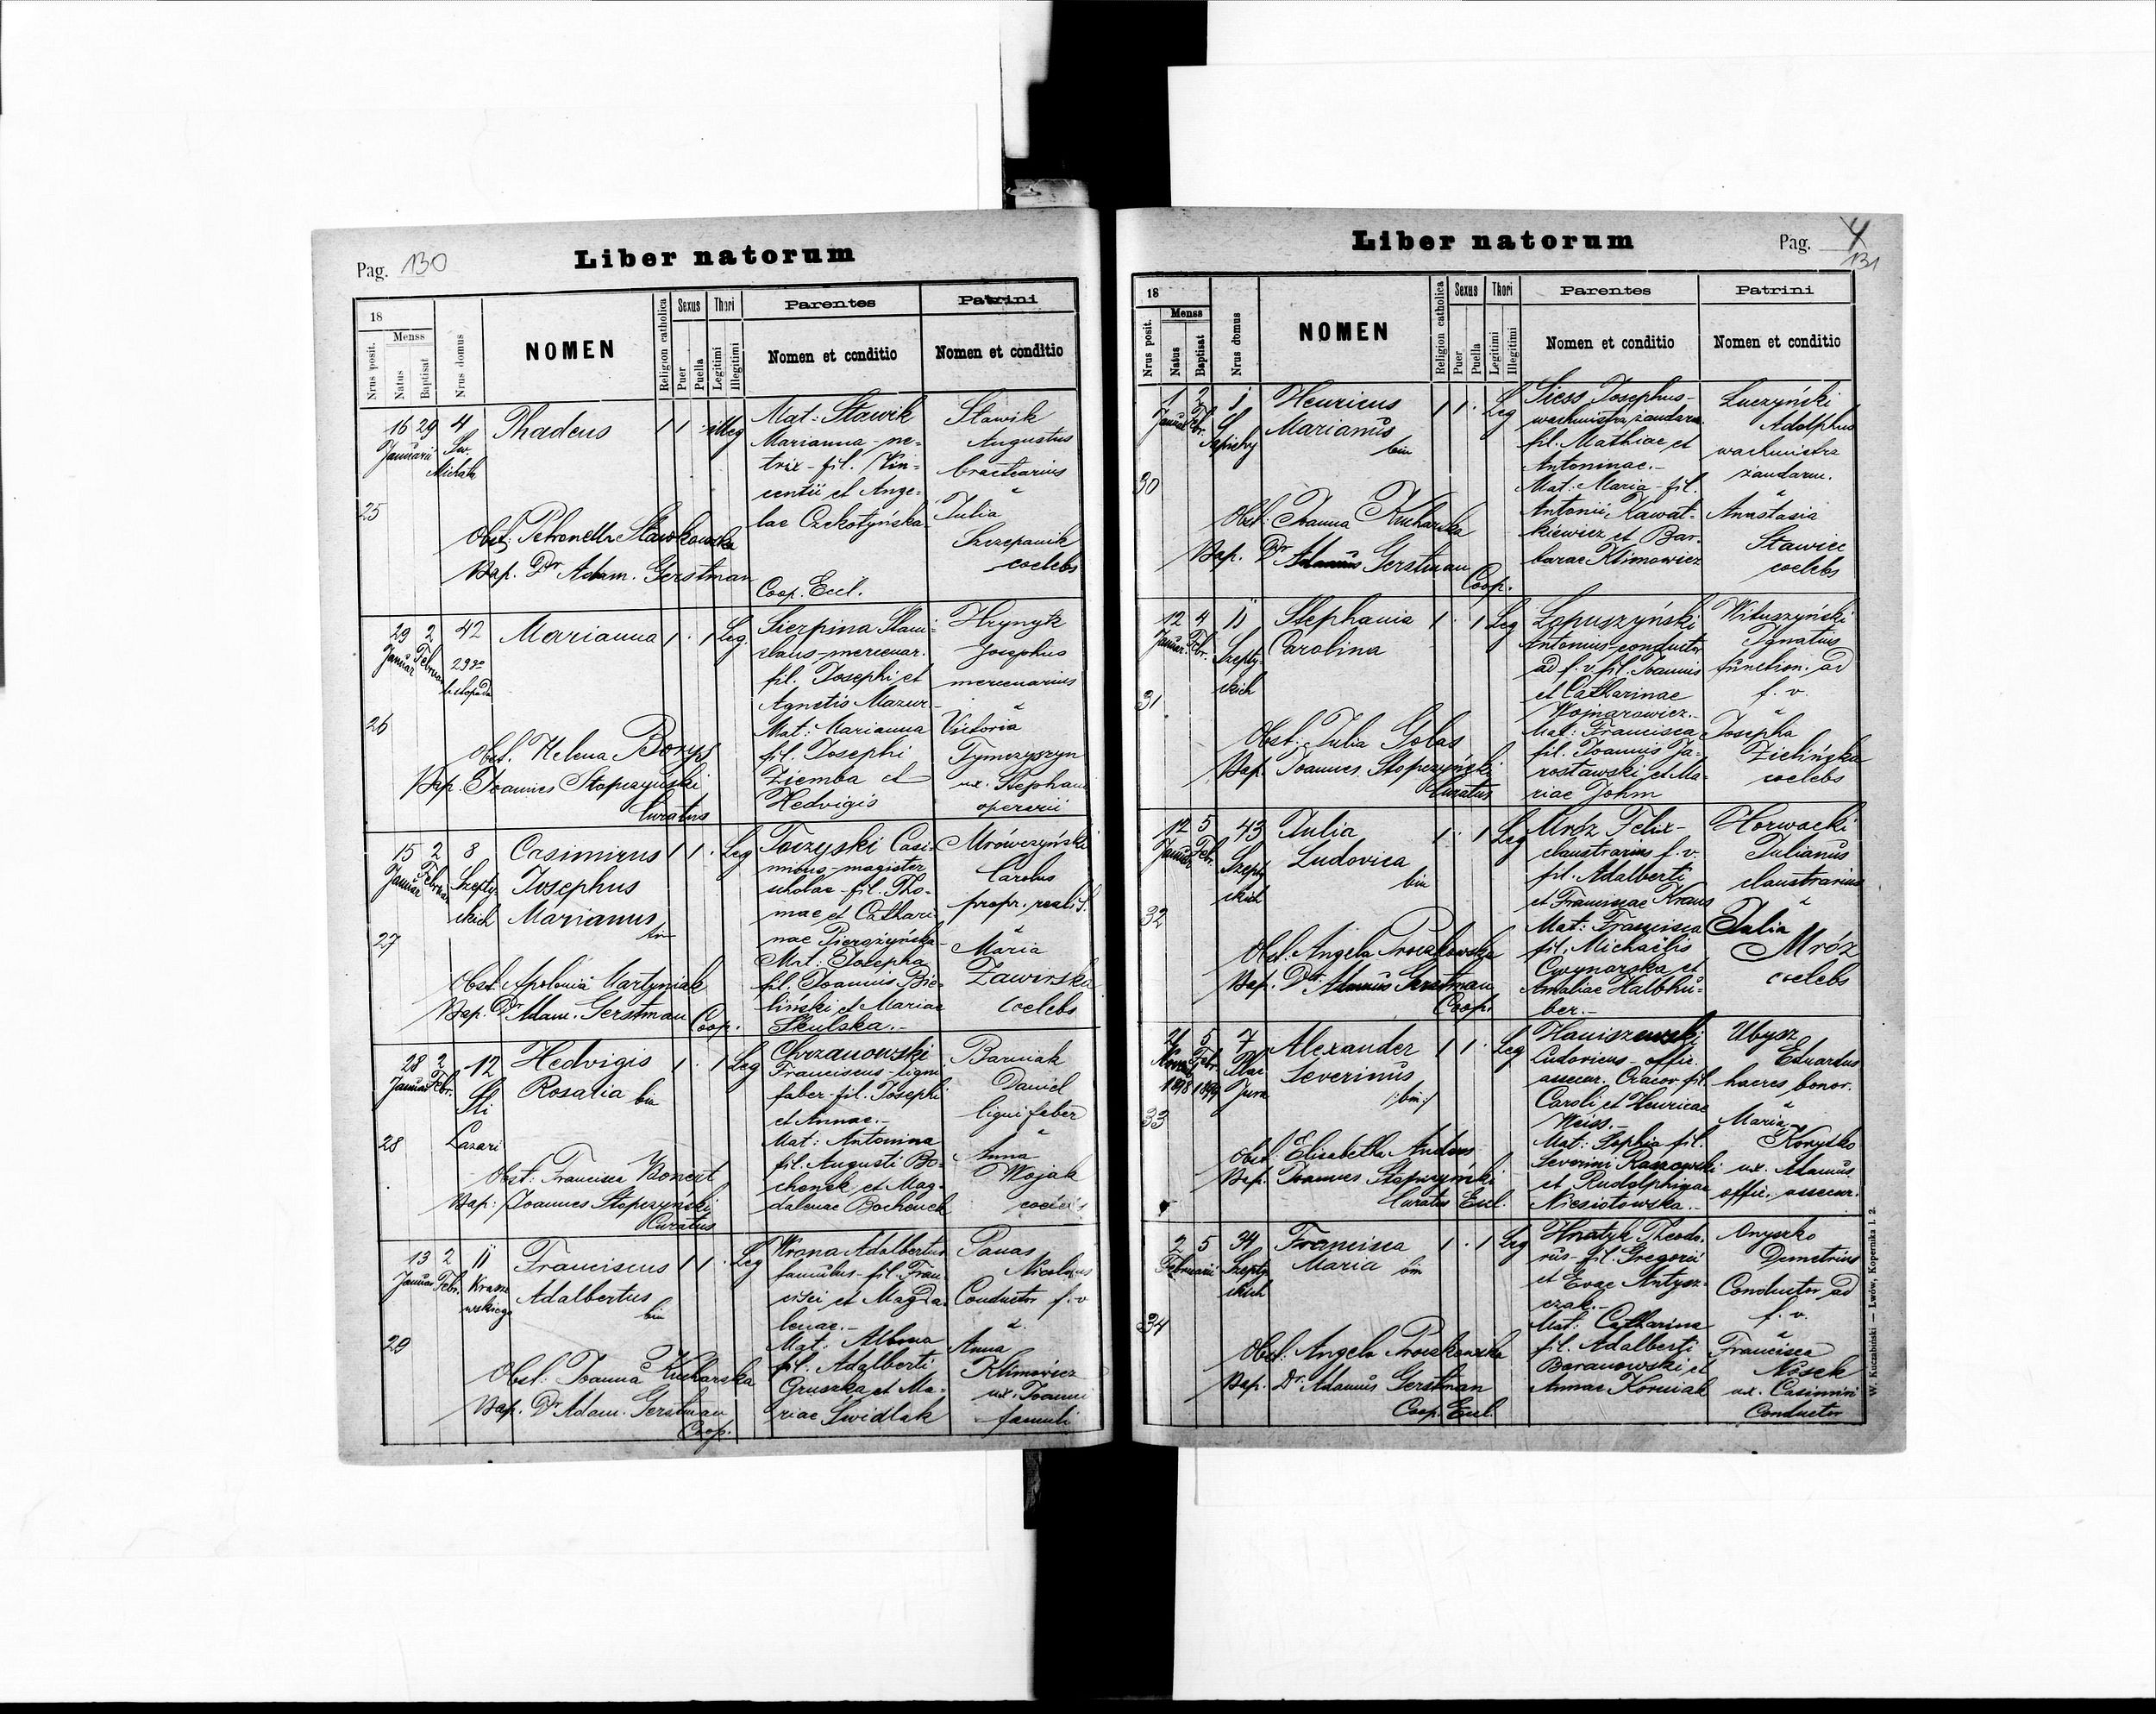 Pag. 130
Liber natorum
18
Menss
Nrus posit.
Natus
Baptisat
Nrus domus
NOMEN
Religion catholica
Sexus
Puer
Puella
Thori
Legitimi
Illegitimi
Parentes
Nomen et conditio
Patrini
Nomen et conditio
25
16 29
Januarii
4
Michała
Thadeus
1 1 illeg
Mat: Sławik
Marianna - ne-
trix - fil. Vin-
centii et Ange-
lae Czekotyńska
Sławik
Augustus
bractearius
Julia
Szczepanik
coelebs
Obst: Petronella Sławkowska
Bap. Dr Adam. Gerstman
Coop. Eccl.
26
29 2
Januar Februar
42
29go
listopada
Marianna
1 1 Leg.
Sierpina Stani-
slaus - mercenar.
fil. Josephi et
Agnetis Mazur.
Mat: Marianna
fil. Josephi
Ziemba et
Hedvigis
Hrynyk
Josephus
mercenarius
Victoria
Tymczyszyn
ux. Stephani
operarii
Obst. Helena Borys
Bap. Joannes Stopczyński
Curatus
27
15 2
Januar Februar
8
Szepty-
ckich
Casimirus
Josephus
Marianus
bin
1 1 Leg
Toczyski Casi-
mirus - magister
scholae - fil. Tho-
mae et Cathari-
nae Pierożyńska
Mat: Josepha
fil. Joannis Bie-
liński et Mariae
Skulska.-
Mrówczyński
Carolus
propr. realit.
Maria
Zawirska
coelebs
Obst. Apolonia Martyniak
Bap. Dr Adam. Gerstman
Coop.
28
28 2
Januar Febr.
12
Sti
Lazari
Hedvigis
Rosalia bin
1 1 Leg
Chrzanowski
Franciscus - ligni
faber - fil. Josephi
et Annae.-
Mat: Antonina
fil. Augusti Bo-
chenek et Mag-
dalenae Bochenek
Barniak
Daniel
ligni faber
Anna
Wojak
coelebs
Obst: Francisca Bonert
Bap: Joannes Stopczyński
Curatus
29
13 2
Januar Febr.
11
Krasze
wskiego
Franciscus
Adalbertus
bin
1 1 Leg
Wrona Adalbertus
famulus - fil. Fran
cisci et Magda-
lenae.-
Mat: Albina
fil. Adalberti
Gruszka et Ma-
riae Swidlak
Panas
Nicolaus
Conductor f. v
Anna
Klimowicz
ux. Joanni
famuli
Obst: Joanna Kucharska
Bap. Dr Adam. Gerstman
Coop.
Liber natorum
Pag. 4
131
18
Menss
Nrus posit.
Natus
Baptisat
Nrus domus
NOMEN
Religion catholica
Sexus
Puer
Puella
Thori
Legitimi
Illegitimi
Parentes
Nomen et conditio
Patrini
Nomen et conditio
30
1 2
Januar Febr.
1
Sapiehy
Henricus
Marianus
bin
1 1 Leg
Siess Josephus -
wachmistrz żandarm
fil. Mathiae et
Antoninae.-
Mat: Maria - fil.
Antonii Kawał-
kiewicz et Bar-
barae Klimowicz
Luczyński
Adolphus
wachmistrz
żandarm.
Anastasia
Stawiec
coelebs
Obst: Joanna Kucharska
Bap. Dr Adamus Gerstman
Coop.
31
12 4
Januar Febr.
11
Szepty
ckich
Stephania
Carolina
1 1 Leg
Łopuszyński
Antonius - conductor
ad f. v. fil. Joannis
et Catharinae
Wojnarowicz.-
Mat: Francisca
fil. Joannis Ja-
rosławski et Ma-
riae Johm
Wituszyński
Ignatius
function. ad
f. v.
Josepha
Zielińska
coelebs
Obst: Julia Golas
Bap. Joannes Stopczyński
Curatus
32
12 5
Januar Febr.
43
Szepty
ckich
Julia
Ludovica
bin
1 1 Leg
Mróz Felix -
claustrarius f. v.
fil. Adalberti
et Franciscae Kraus
Mat: Francisca
fil. Michaëlis
Cwynarska et
Amaliae Halbhu-
ber.-
Horwacki
Julianus
claustrarius
Julia
Mróz
coelebs
Obst. Angela Proczkowska
Bap. Dr Adamus Gerstman
Coop.
33
21 5
Novemb Febr.
1898 1899
7
Plac
Jura
Alexander
Severinus
/:bin:/
1 1 Leg
Haniszewski
Ludovicus - offic.
assecur. Cracov. fil.
Caroli et Henricae
Weiss.-
Mat: Sophia fil.
Severini Raszowski
et Rudolphinae
Niesiołowska.-
Ubysz
Eduardus
haeres bonor.
Maria
Konyłko
ux. Adamus
offic. assecur.
Obst. Elisabetha Anders
Bap. Joannes Stopczyński
Curatus Eccl.
34
2 5
Februarii
34
Szepty
ckich
Francisca
Maria bin
1 1 Leg
Hnatyk Theodo-
rus - fil. Gregorii
et Evae Antysz-
czak.-
Mat: Catharina
fil. Adalberti
Baranowski et
Annae Korniak
Onyszko
Demetrius
Conductor ad
f. v.
Francisca
Nosek
ux. Casimiri
Conductor
Obst. Angela Proczkowska
Bap. Dr Adamus Gerstman
Coop. Eccl.
W. Kuczabiński — Lwów, Kopernika l. 2.